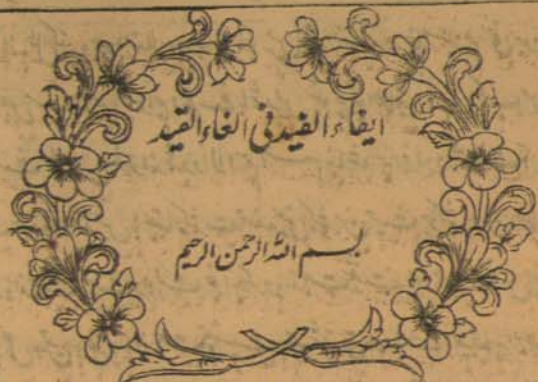 ايفاء الفيد في الغاء القيد
بسم الله الرحمن الرحيم